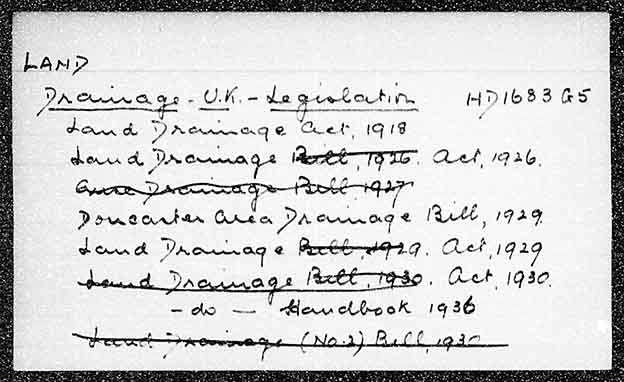 LAND
Drainage - U.K. - Legislation HD1683 G5
Land Drainage Act, 1918
Land Drainage Bill, 1926. Act, 1926.
Ouse Drainage Bill 1927
Doncaster Area Drainage Bill, 1929.
Land Drainage Bill, 1929. Act, 1929
Land Drainage Bill, 1930. Act, 1930.
- do - Handbook 1936
Land Drainage (No.2) Bill, 1930